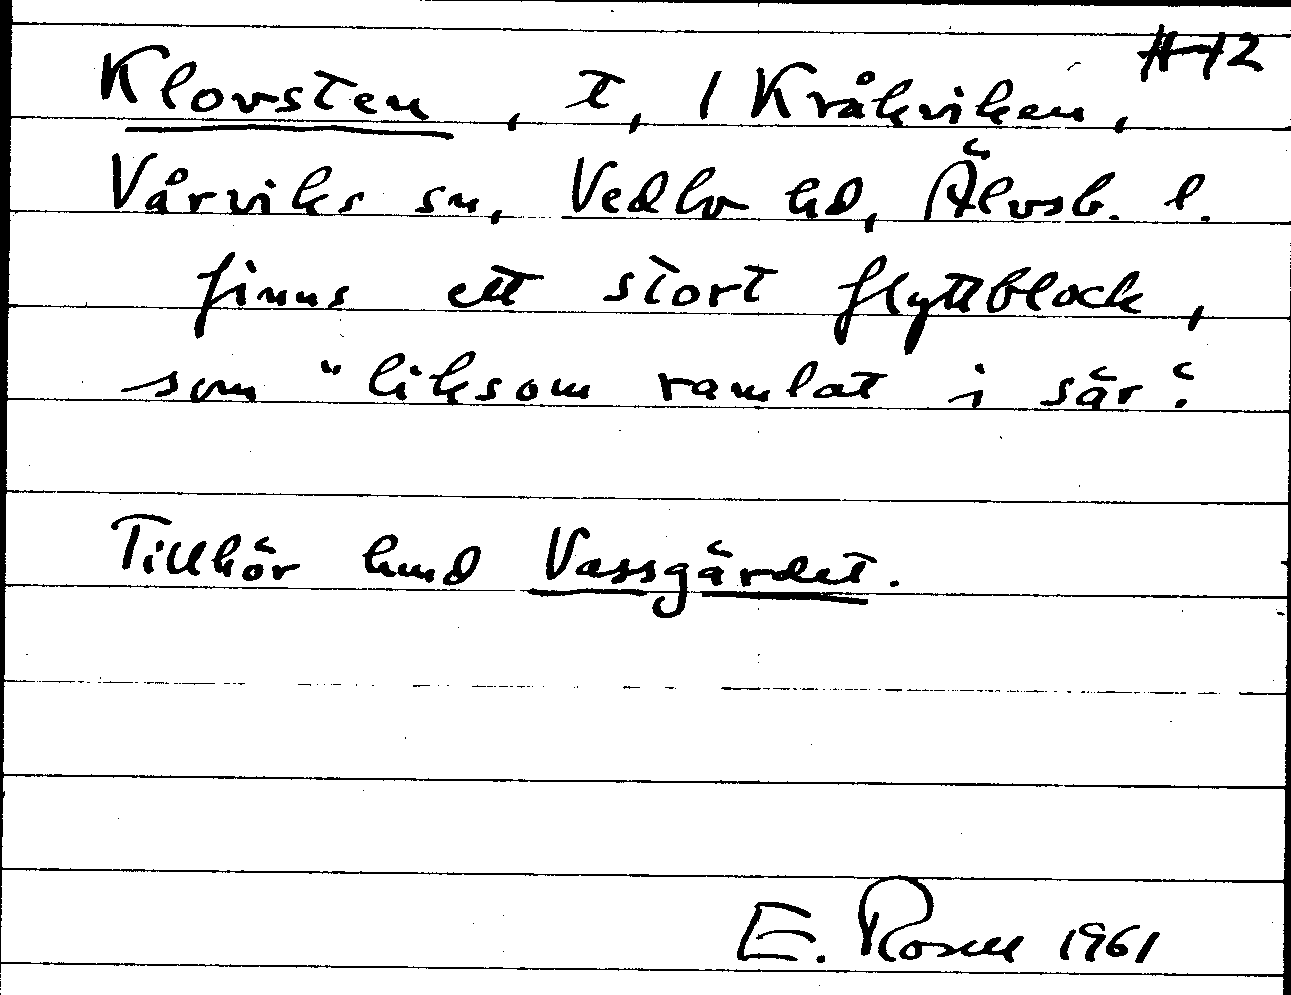 H 12
Klovsten, t, I Kråkviken,
Vårviks sn, Vedbo hd, Älvsb. l.
finns ett stort flyttblock,
som "liksom ramlat i sär".
Tillhör hmd Vassgärdet.
E. Rosell 1961